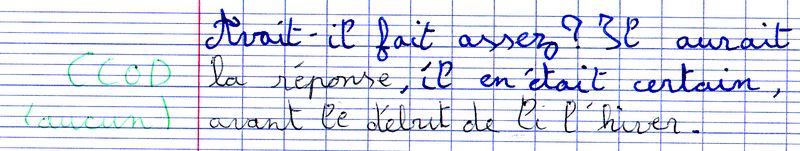 Avait-il fait assez? Il aurait
CCOD la réponse, il en était certain,
(aucun) avant le début de li l'hiver.